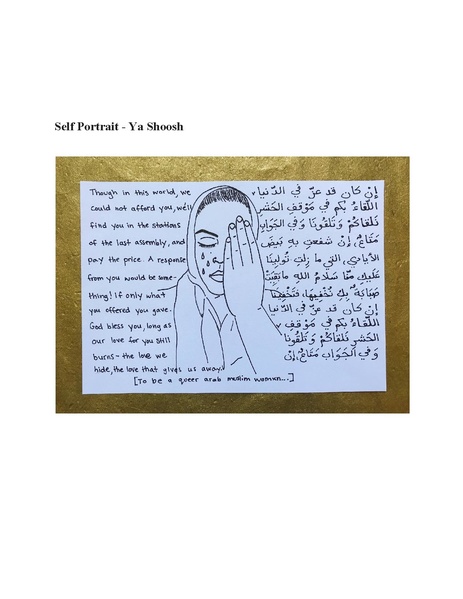 Self Portrait - Ya Shoosh
Though in this world, we
could not afford you, we'll
find you in the stations
of the last assembly, and
pay the price. A response
from you would be some-
thing! If only what
you offered you gave.
God bless you, long as
our love for you still
burns - the love we
hide, the love that gives us away.
[To be a queer arab muslim woman...]
إن كان قد عزّ في الدّنيا
اللّقاءُ بكم في مَوْقفِ الحَشرِ
نَلقاكمْ وَتَلقونَا وَفي الجَوابِ
مَتَاعٌ، إنْ شفعتِ بهِ بَيضَ
الأيادي، التي ما زلتِ تُولينَا
عَليكِ منّا سَلامُ اللهِ ما بَقِيَتْ
صَبَابَةٌ بكِ نُخْفِيهَا، فَتَخْفِينَا
إن كان قد عزّ في الدّنيا
اللّقاءُ بكم في مَوْقفِ
الحَشرِ نَلقاكمْ وَتَلقونَا
وَفي الجَوَابِ مَتَاعٌ، إنْ